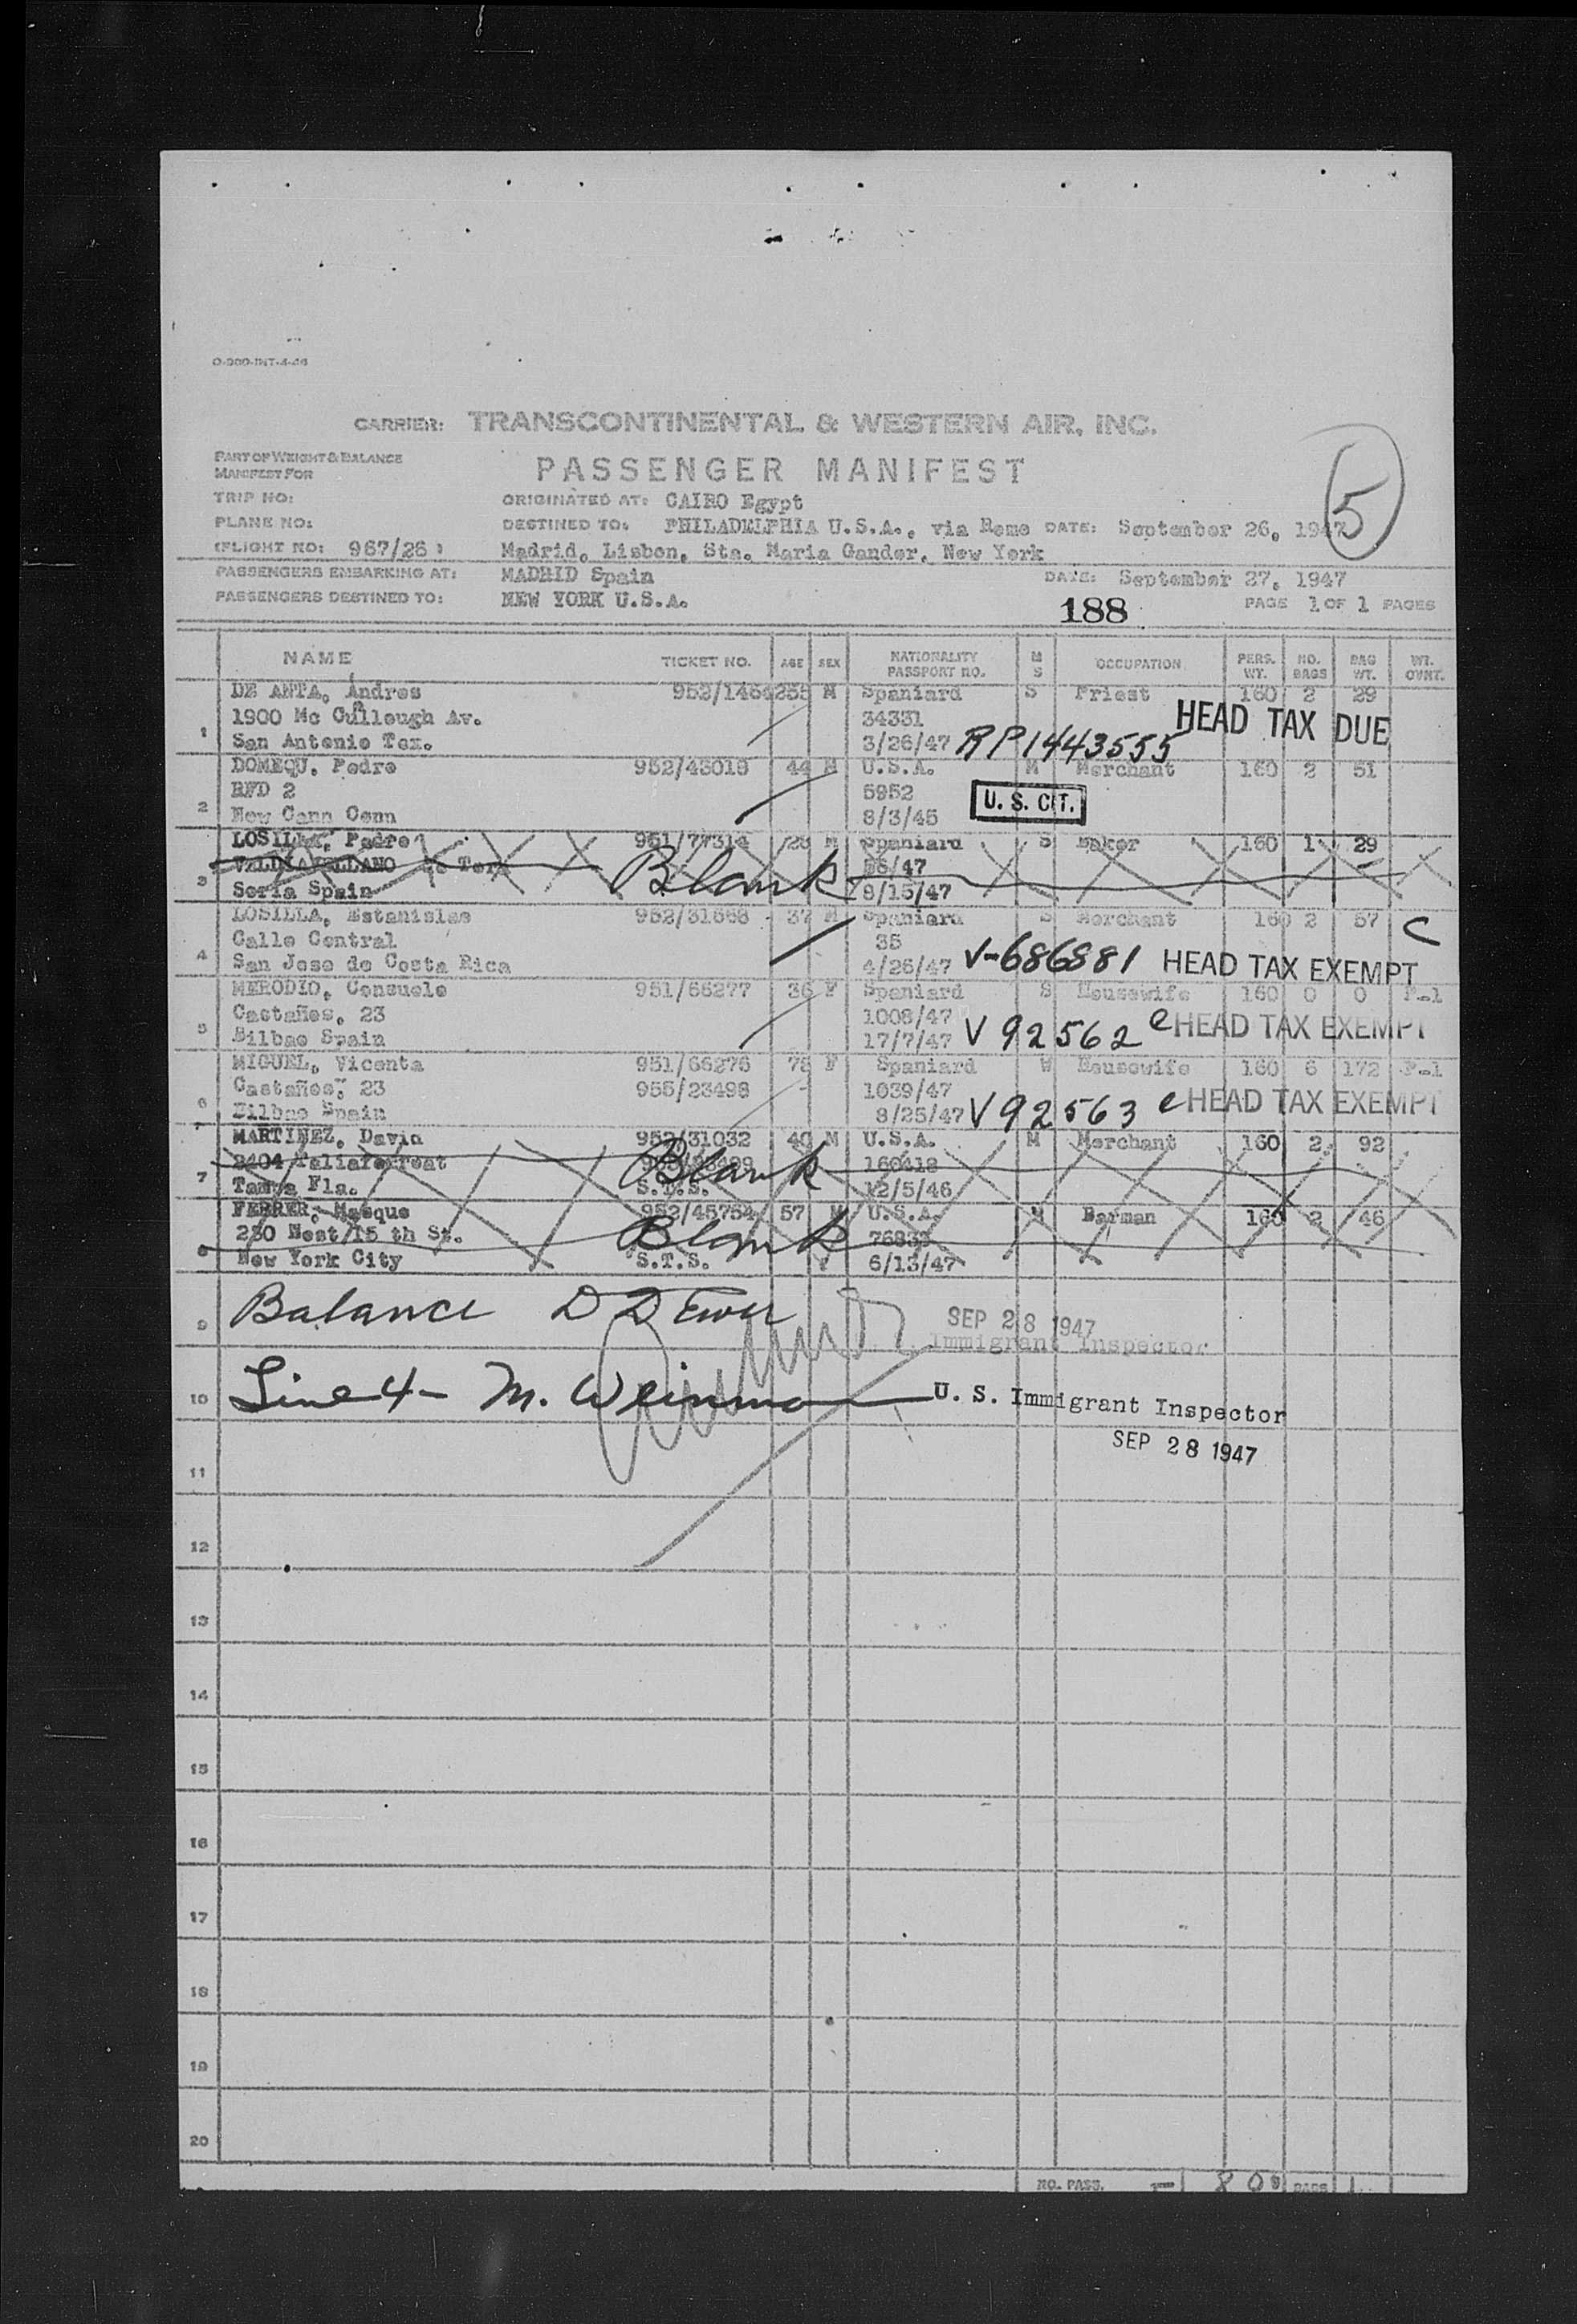 O-200-INT-4-46
CARRIER: TRANSCONTINENTAL & WESTERN AIR, INC.
PART OF WEIGHT & BALANCE
MANIFEST FOR
PASSENGER MANIFEST
5
TRIP NO:
ORIGINATED AT: CAIRO Egypt
PLANE NO:
DESTINED TO: PHILADELPHIA U.S.A., via Rome DATE: September 26, 1947
(FLIGHT NO: 967/26 )
Madrid, Lisbon, Sta. Maria Gander, New York
PASSENGERS EMBARKING AT: MADRID Spain DATE: September 27, 1947
PASSENGERS DESTINED TO: NEW YORK U.S.A. 188 PAGE 1 OF 1 PAGES
NAME TICKET NO. AGE SEX NATIONALITY PASSPORT NO. M S OCCUPATION PERS. WT. NO. BAGS BAG WT. WT. OVNT.
DE ANTA, Andres M Spaniard S Priest 160 2 29
1900 Mc Cullough Av. 34331 HEAD TAX DUE
1 San Antonio Tex. 3/26/47 RP1443555
DOMEQU, Pedro 952/43018 44 M U.S.A. M Merchant 160 2 51
RFD 2 5952 U. S. CIT.
2 New Cann Conn 8/3/45
LOSILLA, Pedro 951/77314 M Spaniard S Baker 160 1 29
3 Soria Spain Blank 8/15/47
LOSILLA, Estanislao 952/31668 37 M Spaniard S Merchant 160 2 57 C
Calle Central 35
4 San Jose de Costa Rica 4/26/47 V-686881 HEAD TAX EXEMPT
MERODIO, Consuelo 951/66277 36 F Spaniard S Housewife 160 0 0 F-1
Castaños, 23 1008/47
5 Bilbao Spain 17/7/47 V 92562 e HEAD TAX EXEMPT
MIGUEL, Vicenta 951/66276 78 F Spaniard W Housewife 160 6 172 F-1
Castaños, 23 955/23498 1039/47
6 Bilbao Spain 8/25/47 V 92563 e HEAD TAX EXEMPT
MARTINEZ, David 952/31032 40 M U.S.A. M Merchant 160 2 92
2404 Blank 160418
7 Tampa Fla. S.T.S. 12/5/46
FERRER, Masque 952/45754 57 M U.S.A. M Barman 160 2 46
230 West 15 th St. Blank
8 New York City S.T.S. 6/13/47
9 Balance D D Ewer SEP 28 1947
Immigrant Inspector
10 Line 4 - M. Weinman U. S. Immigrant Inspector
SEP 28 1947
11
12
13
14
15
16
17
18
19
20
NO. PASS.